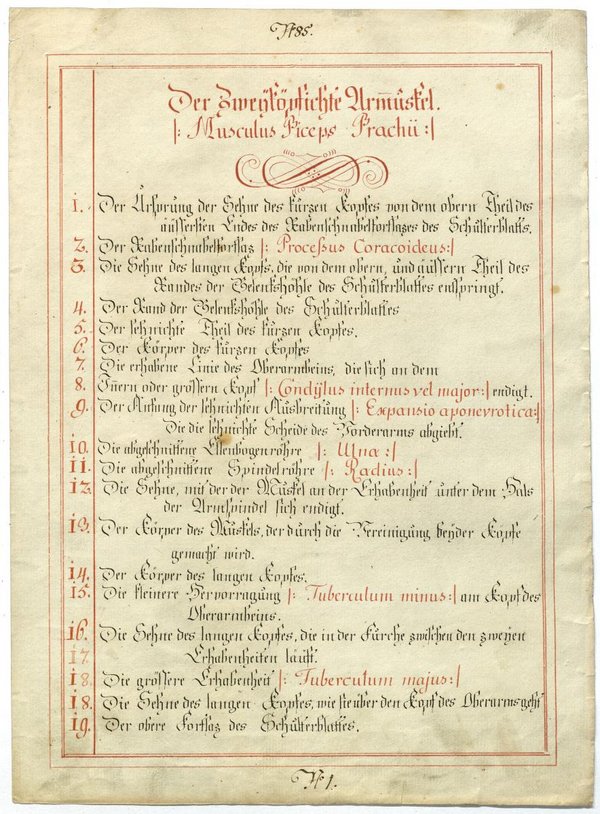 N 85.
Der Zweyköpfichte Armmuskel.
|: Musculus Biceps Brachii :|
1. Der Ursprung der Sehne des kurzen Kopfes von dem obern Theil des
äussersten Endes des Rabenschnabelfortsazes des Schulterblatts.
2. Der Rabenschnabelfortsaz |: Processus Coracoideus :|
3. Die Sehne des langen Kopfs, die von dem obern, und äussern Theil des
Randes der Gelenkshöhle des Schulterblattes entspringt.
4. Der Rand der Gelenkshöhle des Schulterblattes
5. Der sehnichte Theil des kurzen Kopfes.
6. Der Körper des kurzen Kopfes
7. Die erhabene Linie des Oberarmbeins, die sich an dem
8. Innern oder grössern Kopf |: Condÿlus internus vel major :| endigt.
9. Der Anfang der sehnichten Ausbreitung |: Expansio aponevrotica :|
Die die sehnichte Scheide des Vorderarms abgiebt.
10. Die abgeschnittene Ellenbogenröhre |: Ulna :|
11. Die abgeschnittene Spindelröhre |: Radius :|
12. Die Sehne, mit der der Muskel an der Erhabenheit unter dem Hals
der Armspindel sich endigt.
13. Der Körper des Muskels, der durch die Vereinigung beyder Köpfe
gemacht wird.
14. Der Körper des langen Kopfes.
15. Die kleinere Hervorragung |: Tuberculum minus :| am Kopf des
Oberarmbeins.
16. Die Sehne des langen Kopfes, die in der Furche zwischen den zweyen
17. Erhabenheiten läuft.
18. Die grössere Erhabenheit |: Tuberculum majus :|
18. Die Sehne des langen Kopfes, wie sie über den Kopf des Oberarms geht
19. Der obere Fortsaz des Schulterblattes.
N 1.